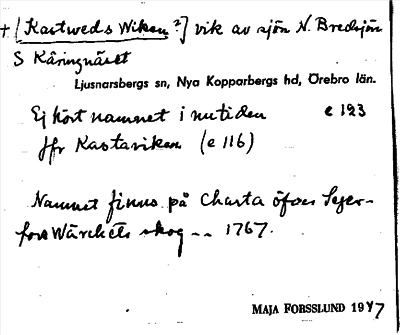 + [Kastweds Wiken?] vik av sjön N. Bredsjön
S Käringnäset
Ljusnarsbergs sn, Nya Kopparbergs hd, Örebro län.
Ej hört namnet i nutiden e 123
Jfr Kastarviken (e 116)
Namnet finns på Charta öfver
fors Wärckets skog -- 1767.
MAJA FORSSLUND 1947